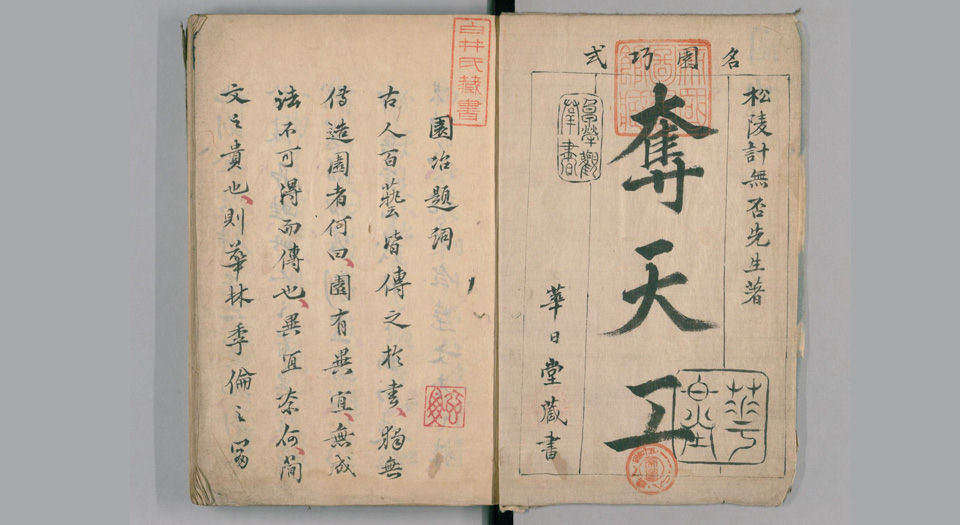 名園巧式
松陵計無否先生著
奪天工
華日堂藏書
白井氏藏書
園冶題詞
古人百藝皆傳之於書、獨無
傳造園者何曰、園有異宜、無成
法不可得而傳也、異宜奈何、簡
文之貴也、則華林季倫之富